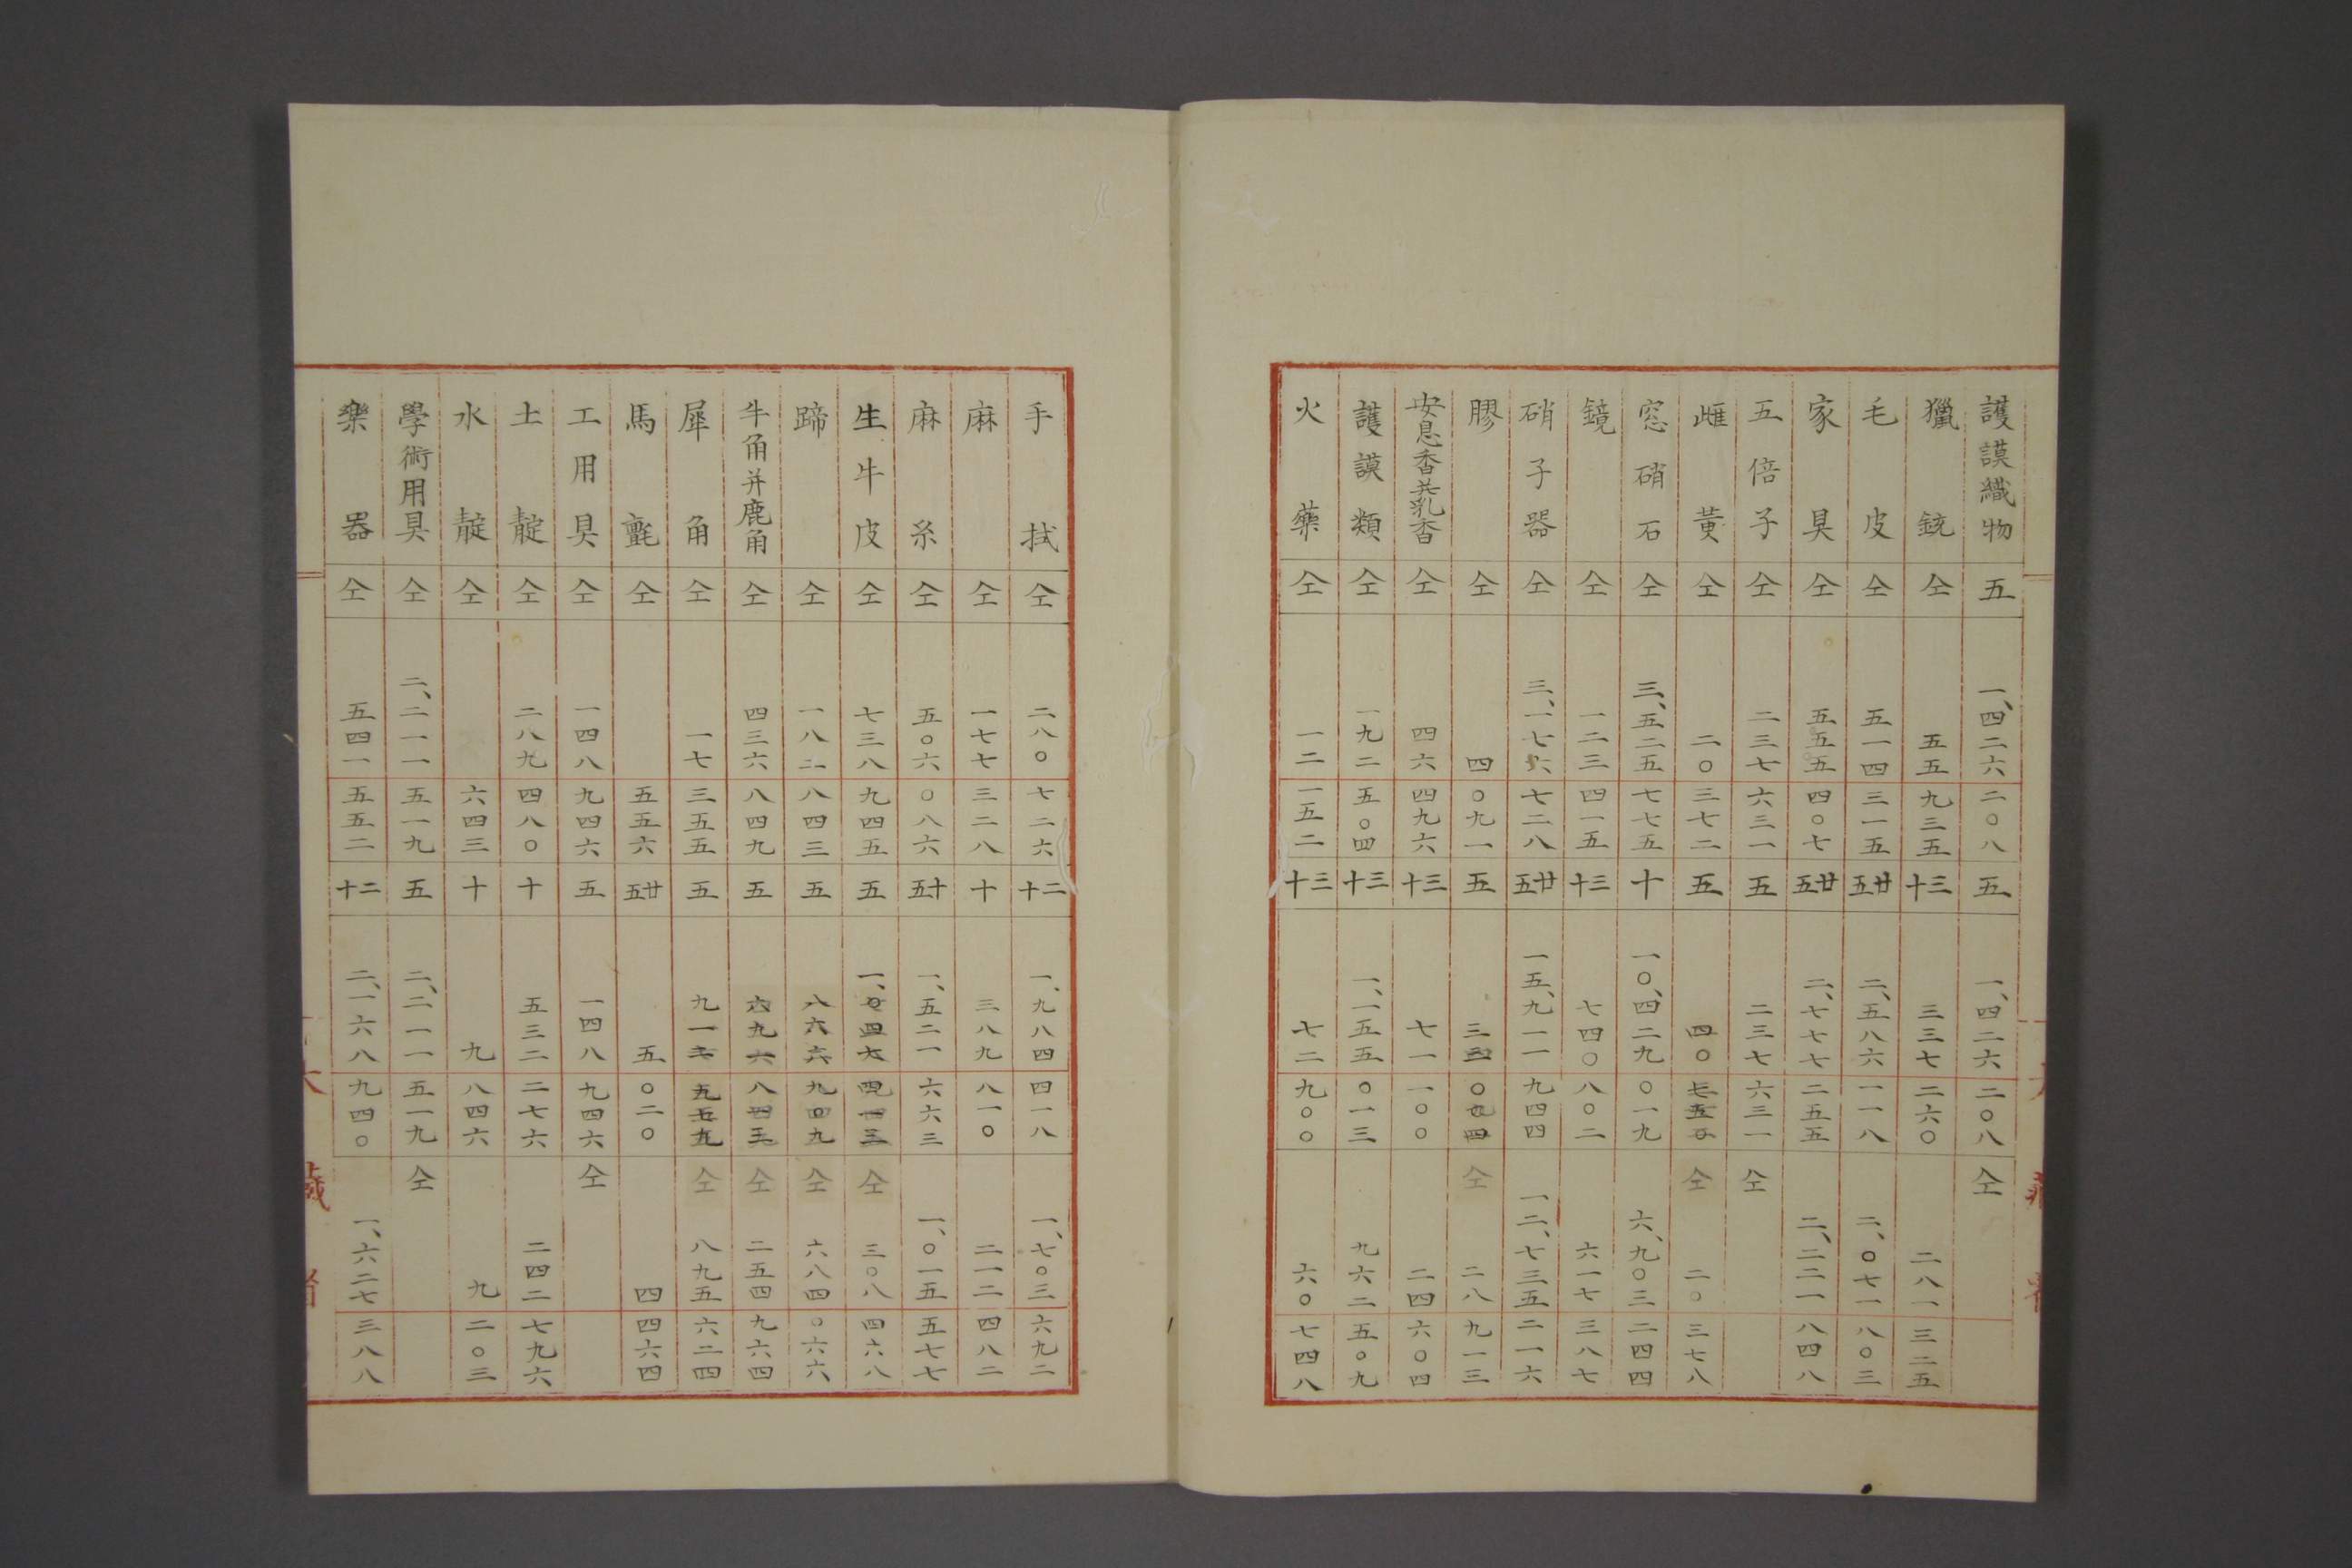 護謨織物 五 一、四二六 二〇八 五 一、四二六 二〇八 仝
獵銃 仝 五五 九三五 十三 三三七 二六〇 二八一 三二五
毛皮 仝 五一四 三一五 廿五 二、五八六 一一八 二、〇七一 八〇三
家具 仝 五五五 四〇七 廿五 二、七七七 二五五 二、二二一 八四八
五倍子 仝 二三七 六三一 五 二三七 六三一 仝
雌黄 仝 二〇 三七二 五 四〇 七五〇 仝 二〇 三七八
窓硝石 仝 三、五二五 七七五 十 一〇、四二九 〇一九 六、九〇三 二四四
鏡 仝 一二三 四一五 十三 七四〇 八〇二 六一七 三八七
硝子器 仝 三、一七六 七二八 廿五 一五、九一一 九四四 一二、七三五 二一六
膠 仝 四 〇九一 五 仝 二八 九一三
安息香共乳香 仝 四六 四九六 十三 七一 一〇〇 二四 六〇四
護謨類 仝 一九二 五〇四 十三 一、一五五 〇一三 九六二 五〇九
火藥 仝 一二 一五二 十三 七二 九〇〇 六〇 七四八
手拭 仝 二八〇 七二六 十二 一、九八四 四一八 一、七〇三 六九二
麻 仝 一七七 三二八 十 三八九 八一〇 二一二 四八二
麻糸 仝 五〇六 〇八六 十五 一、五二一 六六三 一、〇一五 五七七
生牛皮 仝 七三八 九四五 五 仝 三〇八 四六八
蹄 仝 一八二 八四三 五 仝 六八四 〇六六
牛角并鹿角 仝 四三六 八四九 五 仝 二五四 九六四
犀角 仝 一七 三五五 五 仝 八九五 六二四
馬氈 仝 五五六 廿五 五 〇二〇 四 四六四
工用具 仝 一四八 九四六 五 一四八 九四六 仝
土靛 仝 二八九 四八〇 十 五三二 二七六 二四二 七九六
水靛 仝 六四三 十 九 八四六 九 二〇三
學術用具 仝 二、二一一 五一九 五 二、二一一 五一九 仝
樂器 仝 五四一 五五二 十二 二、一六八 九四〇 一、六二七 三八八